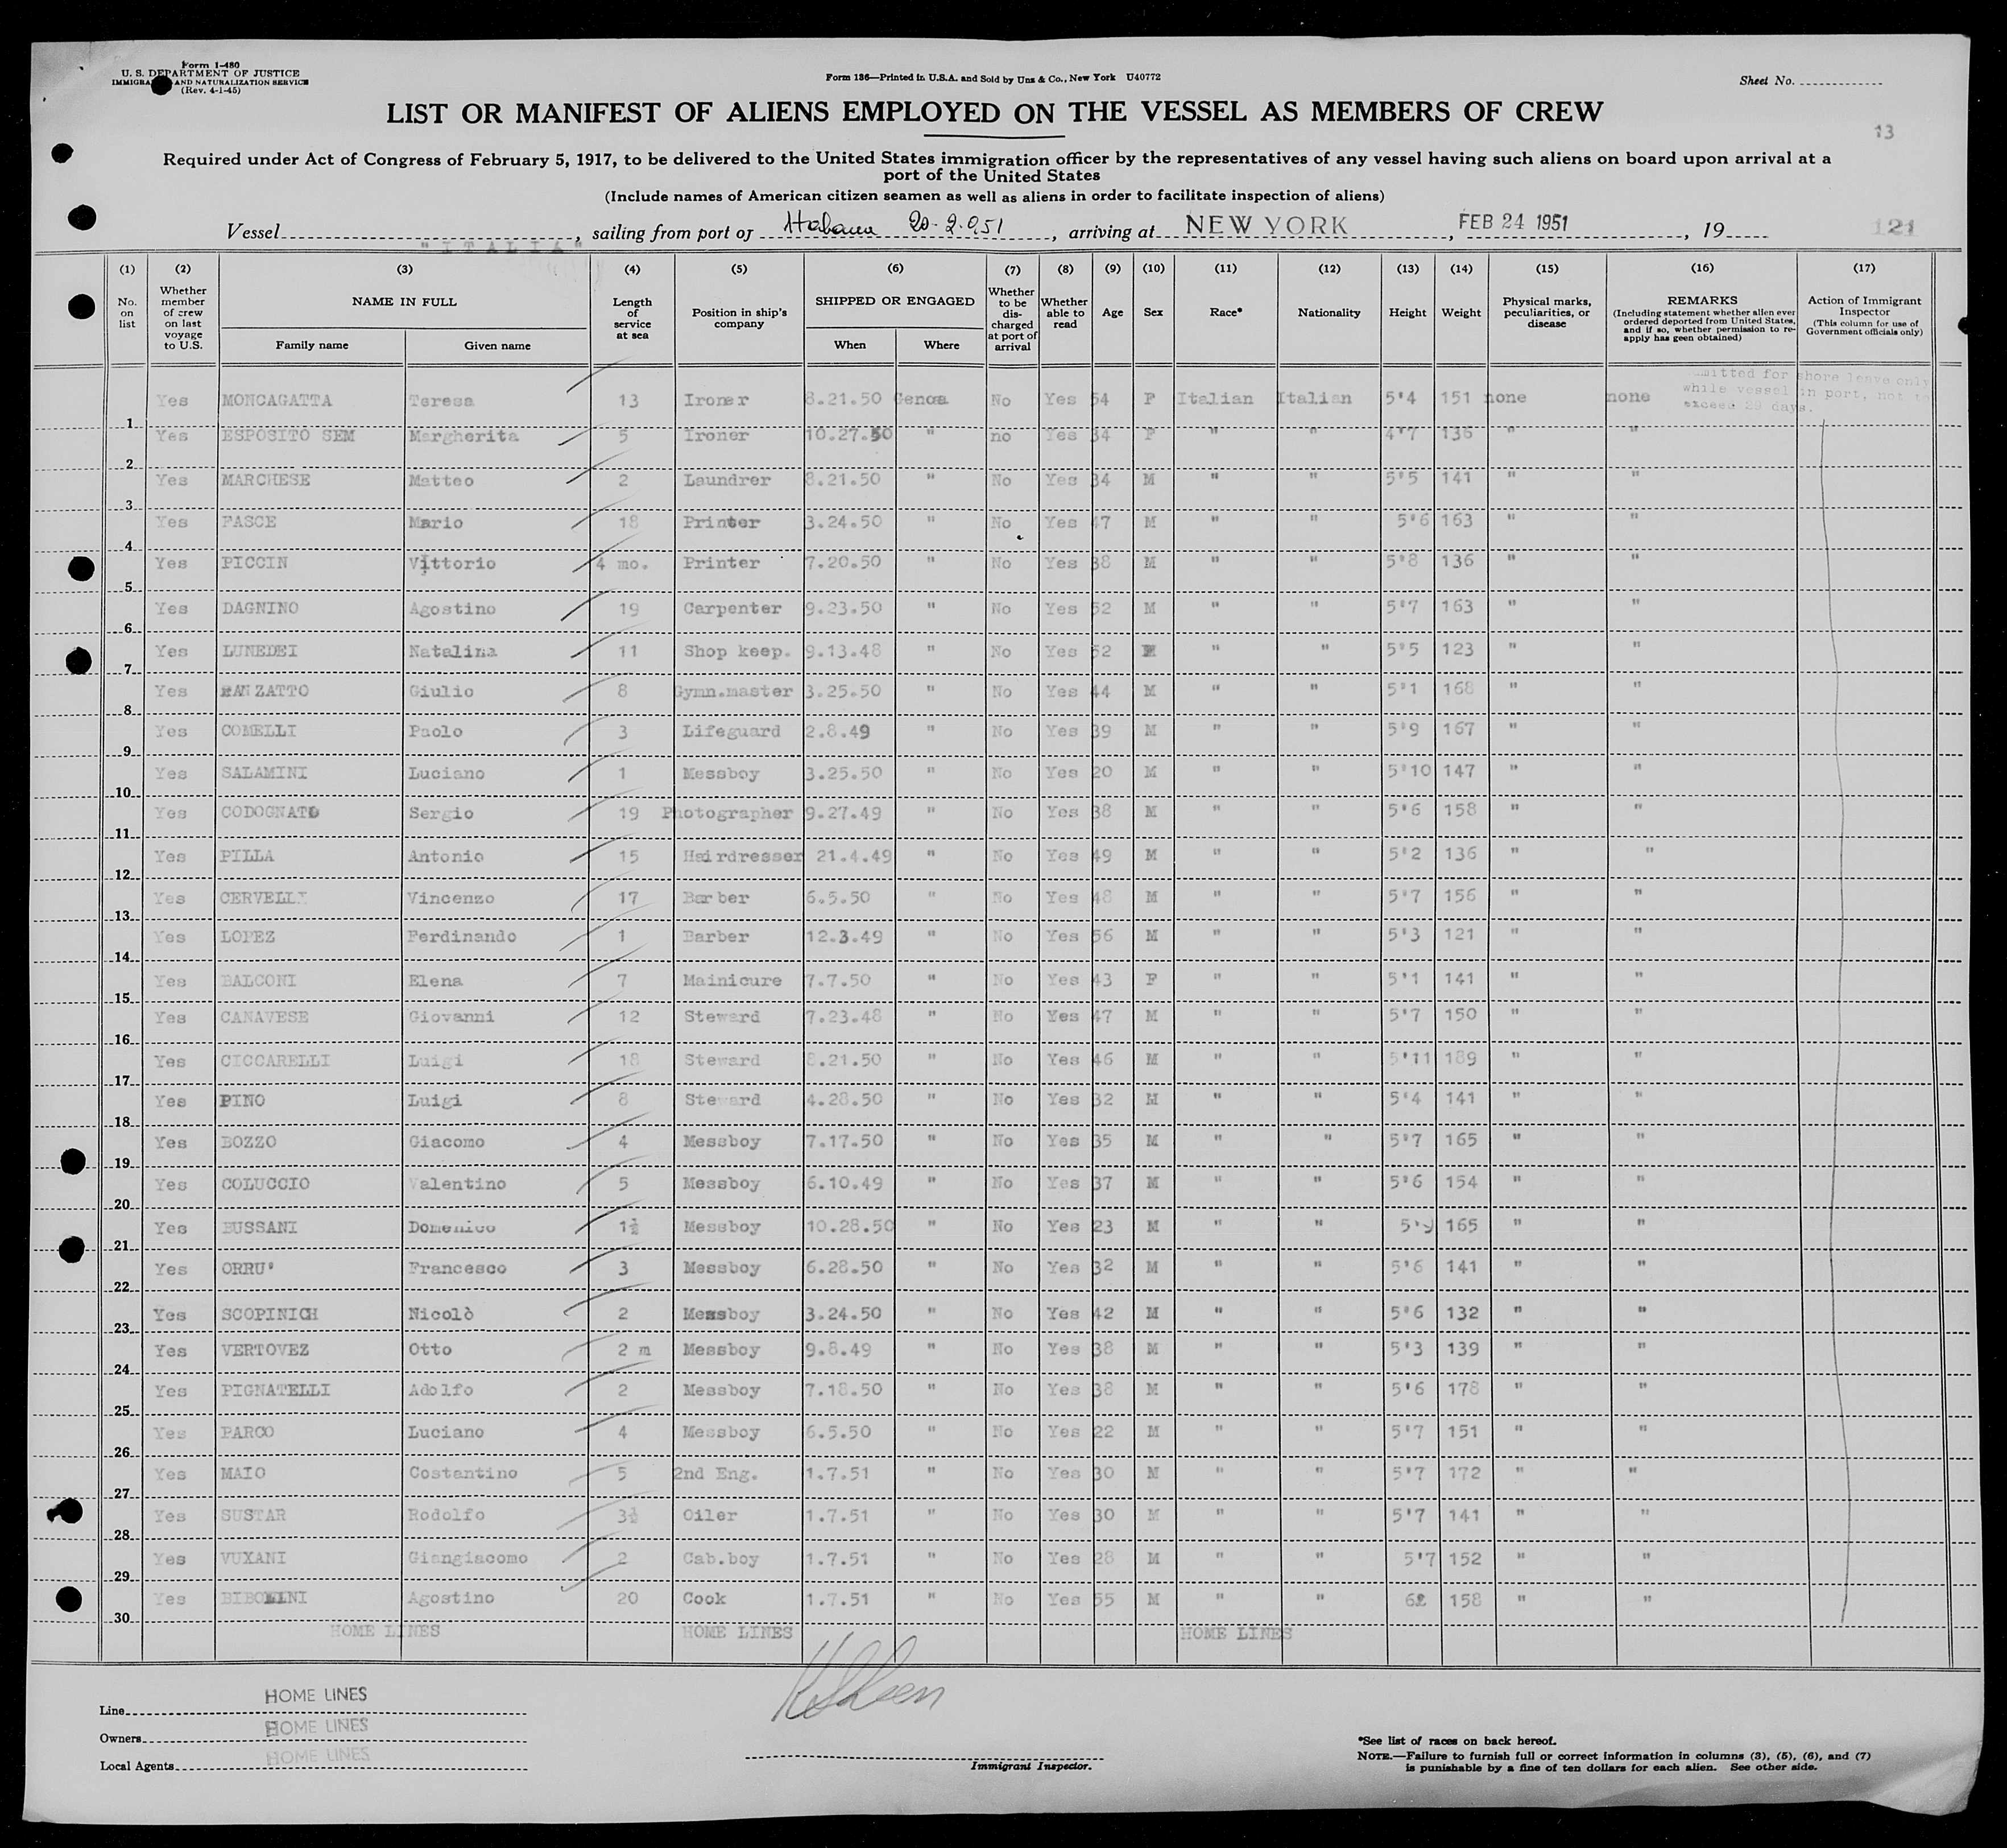 Form I-480
U. S. DEPARTMENT OF JUSTICE
IMMIGRA AND NATURALIZATION SERVICE
(Rev. 4-1-45)
Form 136—Printed in U.S.A. and Sold by Unz & Co., New York U40772
Sheet No.
LIST OR MANIFEST OF ALIENS EMPLOYED ON THE VESSEL AS MEMBERS OF CREW
13
Required under Act of Congress of February 5, 1917, to be delivered to the United States immigration officer by the representatives of any vessel having such aliens on board upon arrival at a
port of the United States
(Include names of American citizen seamen as well as aliens in order to facilitate inspection of aliens)
Vessel "ITALIA", sailing from port of Habana 20-2-951, arriving at NEW YORK, FEB 24 1951, 19 121
(1) (2) (3) (4) (5) (6) (7) (8) (9) (10) (11) (12) (13) (14) (15) (16) (17)
No. on list
Whether member of crew on last voyage to U.S.
NAME IN FULL
Family name Given name
Length of service at sea
Position in ship's company
SHIPPED OR ENGAGED
When Where
Whether to be discharged at port of arrival
Whether able to read
Age
Sex
Race*
Nationality
Height
Weight
Physical marks, peculiarities, or disease
REMARKS
(Including statement whether alien ever ordered deported from United States, and if so, whether permission to re-apply has geen obtained)
Action of Immigrant Inspector
(This column for use of Government officials only)
mitted for shore leave only
while vessel in port, not to
exceed 29 days.
1 Yes MONCAGATTA Teresa 13 Ironer 8.21.50 Genoa No Yes 54 F Italian Italian 5'4 151 none none
2 Yes ESPOSITO SEM Margherita 5 Ironer 10.27.50 " no Yes 34 F " " 4'7 136 " "
3 Yes MARCHESE Matteo 2 Laundrer 8.21.50 " No Yes 34 M " " 5'5 141 " "
4 Yes FASCE Mario 18 Printer 3.24.50 " No Yes 47 M " " 5'6 163 " "
5 Yes PICCIN Vittorio 4 mo. Printer 7.20.50 " No Yes 38 M " " 5'8 136 " "
6 Yes DAGNINO Agostino 19 Carpenter 9.23.50 " No Yes 52 M " " 5'7 163 " "
7 Yes LUNEDEI Natalina 11 Shop keep. 9.13.48 " No Yes 52 " " 5'5 123 " "
8 Yes Giulio 8 Gymn.master 3.25.50 " No Yes 44 M " " 5'1 168 " "
9 Yes COMELLI Paolo 3 Lifeguard 2.8.49 " No Yes 39 M " " 5'9 167 " "
10 Yes SALAMINI Luciano 1 Messboy 3.25.50 " No Yes 20 M " " 5'10 147 " "
11 Yes CODOGNATO Sergio 19 Photographer 9.27.49 " No Yes 38 M " " 5'6 158 " "
12 Yes PILLA Antonio 15 Hairdresser 21.4.49 " No Yes 49 M " " 5'2 136 " "
13 Yes CERVELLI Vincenzo 17 Barber 6.5.50 " No Yes 48 M " " 5'7 156 " "
14 Yes LOPEZ Ferdinando 1 Barber 12.3.49 " No Yes 56 M " " 5'3 121 " "
15 Yes BALCONI Elena 7 Mainicure 7.7.50 " No Yes 43 F " " 5'1 141 " "
16 Yes CANAVESE Giovanni 12 Steward 7.23.48 " No Yes 47 M " " 5'7 150 " "
17 Yes CICCARELLI Luigi 18 Steward 8.21.50 " No Yes 46 M " " 5'11 189 " "
18 Yes PINO Luigi 8 Steward 4.28.50 " No Yes 32 M " " 5'4 141 " "
19 Yes BOZZO Giacomo 4 Messboy 7.17.50 " No Yes 35 M " " 5'7 165 " "
20 Yes COLUCCIO Valentino 5 Messboy 6.10.49 " No Yes 37 M " " 5'6 154 " "
21 Yes BUSSANI Domenico 1½ Messboy 10.28.50 " No Yes 23 M " " 5'9 165 " "
22 Yes ORRU' Francesco 3 Messboy 6.28.50 " No Yes 32 M " " 5'6 141 " "
23 Yes SCOPINICH Nicolò 2 Messboy 3.24.50 " No Yes 42 M " " 5'6 132 " "
24 Yes VERTOVEZ Otto 2 m Messboy 9.8.49 " No Yes 38 M " " 5'3 139 " "
25 Yes PIGNATELLI Adolfo 2 Messboy 7.18.50 " No Yes 38 M " " 5'6 178 " "
26 Yes PARCO Luciano 4 Messboy 6.5.50 " No Yes 22 M " " 5'7 151 " "
27 Yes MAIO Costantino 5 2nd Eng. 1.7.51 " No Yes 30 M " " 5'7 172 " "
28 Yes SUSTAR Rodolfo 3½ Oiler 1.7.51 " No Yes 30 M " " 5'7 141 " "
29 Yes VUXANI Giangiacomo 2 Cab.boy 1.7.51 " No Yes 28 M " " 5'7 152 " "
30 Yes Agostino 20 Cook 1.7.51 " No Yes 55 M " " 158 " "
HOME LINES HOME LINES HOME LINES
Line HOME LINES
Owners HOME LINES
Local Agents HOME LINES
Immigrant Inspector.
*See list of races on back hereof.
NOTE.—Failure to furnish full or correct information in columns (3), (5), (6), and (7)
is punishable by a fine of ten dollars for each alien. See other side.